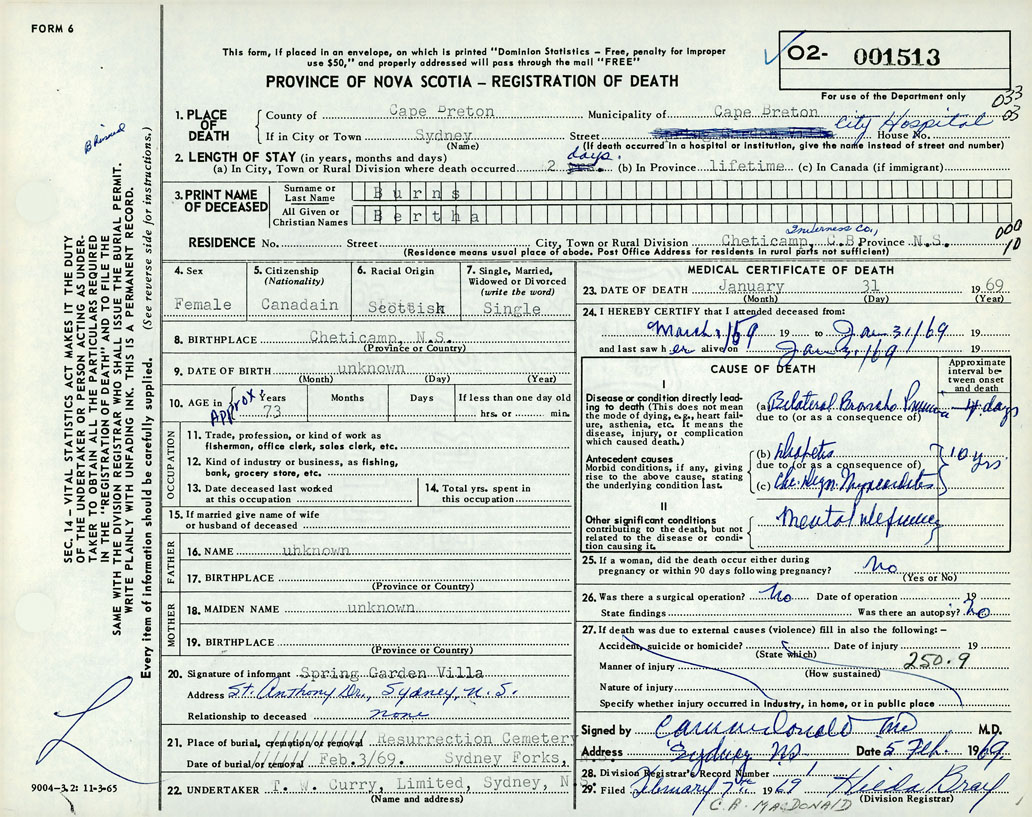 FORM 6
This form, if placed in an envelope, on which is printed "Dominion Statistics – Free, penalty for improper
use $50," and properly addressed will pass through the mail "FREE"
PROVINCE OF NOVA SCOTIA – REGISTRATION OF DEATH
O2- 001513
For use of the Department only
033
03
1. PLACE OF DEATH
County of Cape Breton Municipality of Cape Breton
If in City or Town Sydney Street City Hospital House No.
(Name) (If death occurred in a hospital or institution, give the name instead of street and number)
2. LENGTH OF STAY (in years, months and days)
(a) In City, Town or Rural Division where death occurred 2 days. (b) In Province lifetime (c) In Canada (if immigrant)
3. PRINT NAME OF DECEASED
Surname or Last Name Burns
All Given or Christian Names Bertha
Inverness Co., 000
10
RESIDENCE No. Street City, Town or Rural Division Cheticamp, C.B Province N.S.
(Residence means usual place of abode. Post Office Address for residents in rural parts not sufficient)
4. Sex Female
5. Citizenship (Nationality) Canadain
6. Racial Origin Scottish
7. Single, Married, Widowed or Divorced (write the word) Single
8. BIRTHPLACE Cheticamp, N.S.
(Province or Country)
9. DATE OF BIRTH unknown
(Month) (Day) (Year)
10. AGE in Years Months Days If less than one day old
Approx 73 hrs. or min.
OCCUPATION
11. Trade, profession, or kind of work as
fisherman, office clerk, sales clerk, etc.
12. Kind of industry or business, as fishing,
bank, grocery store, etc.
13. Date deceased last worked at this occupation
14. Total yrs. spent in this occupation
15. If married give name of wife
or husband of deceased
FATHER
16. NAME unknown
17. BIRTHPLACE
(Province or Country)
MOTHER
18. MAIDEN NAME unknown
19. BIRTHPLACE
(Province or Country)
20. Signature of informant Spring Garden Villa
Address St. Anthony Dr., Sydney, N.S.
Relationship to deceased none
21. Place of burial, cremation or removal Resurrection Cemetery
Date of burial or removal Feb.3/69. Sydney Forks,
22. UNDERTAKER T. W. Curry, Limited, Sydney, N.
(Name and address)
MEDICAL CERTIFICATE OF DEATH
23. DATE OF DEATH January 31 1969
(Month) (Day) (Year)
24. I HEREBY CERTIFY that I attended deceased from:
March 1/59 19 to Jan 31/69 19
and last saw her alive on Jan 31/69 19
CAUSE OF DEATH
Approximate interval between onset and death
I
Disease or condition directly leading
to death (This does not mean
the mode of dying, e.g., heart failure,
asthenia, etc. It means the
disease, injury, or complication
which caused death.)
(a) Bilateral Broncho 4 days
due to (or as a consequence of)
Antecedent causes
Morbid conditions, if any, giving
rise to the above cause, stating
the underlying condition last.
(b) Diapetis 10 yrs
due to (or as a consequence of)
(c) Chr. Degn. Myocarditis
II
Other significant conditions
contributing to the death, but not
related to the disease or condition
causing it.
Mental
25. If a woman, did the death occur either during
pregnancy or within 90 days following pregnancy? No
(Yes or No)
26. Was there a surgical operation? No Date of operation 19
State findings Was there an autopsy? No
27. If death was due to external causes (violence) fill in also the following: –
Accident, suicide or homicide? Date of injury 19
(State which)
Manner of injury 250.9
(How sustained)
Nature of injury
Specify whether injury occurred in industry, in home, or in public place
Signed by M.D.
Address Sydney NS Date 5 Feb. 1969.
28. Division Registrar's Record Number 1
29. Filed February 7th 1969 Hilda Bray
(Division Registrar)
C. A. MacDONALD
SEC. 14 – VITAL STATISTICS ACT MAKES IT THE DUTY
OF THE UNDERTAKER OR PERSON ACTING AS UNDERTAKER
TO OBTAIN ALL THE PARTICULARS REQUIRED
IN THE "REGISTRATION OF DEATH" AND TO FILE THE
SAME WITH THE DIVISION REGISTRAR WHO SHALL ISSUE THE BURIAL PERMIT.
WRITE PLAINLY WITH UNFADING INK. THIS IS A PERMANENT RECORD.
Every item of information should be carefully supplied. (See reverse side for instructions.)
9004–3.2: 11-3-65